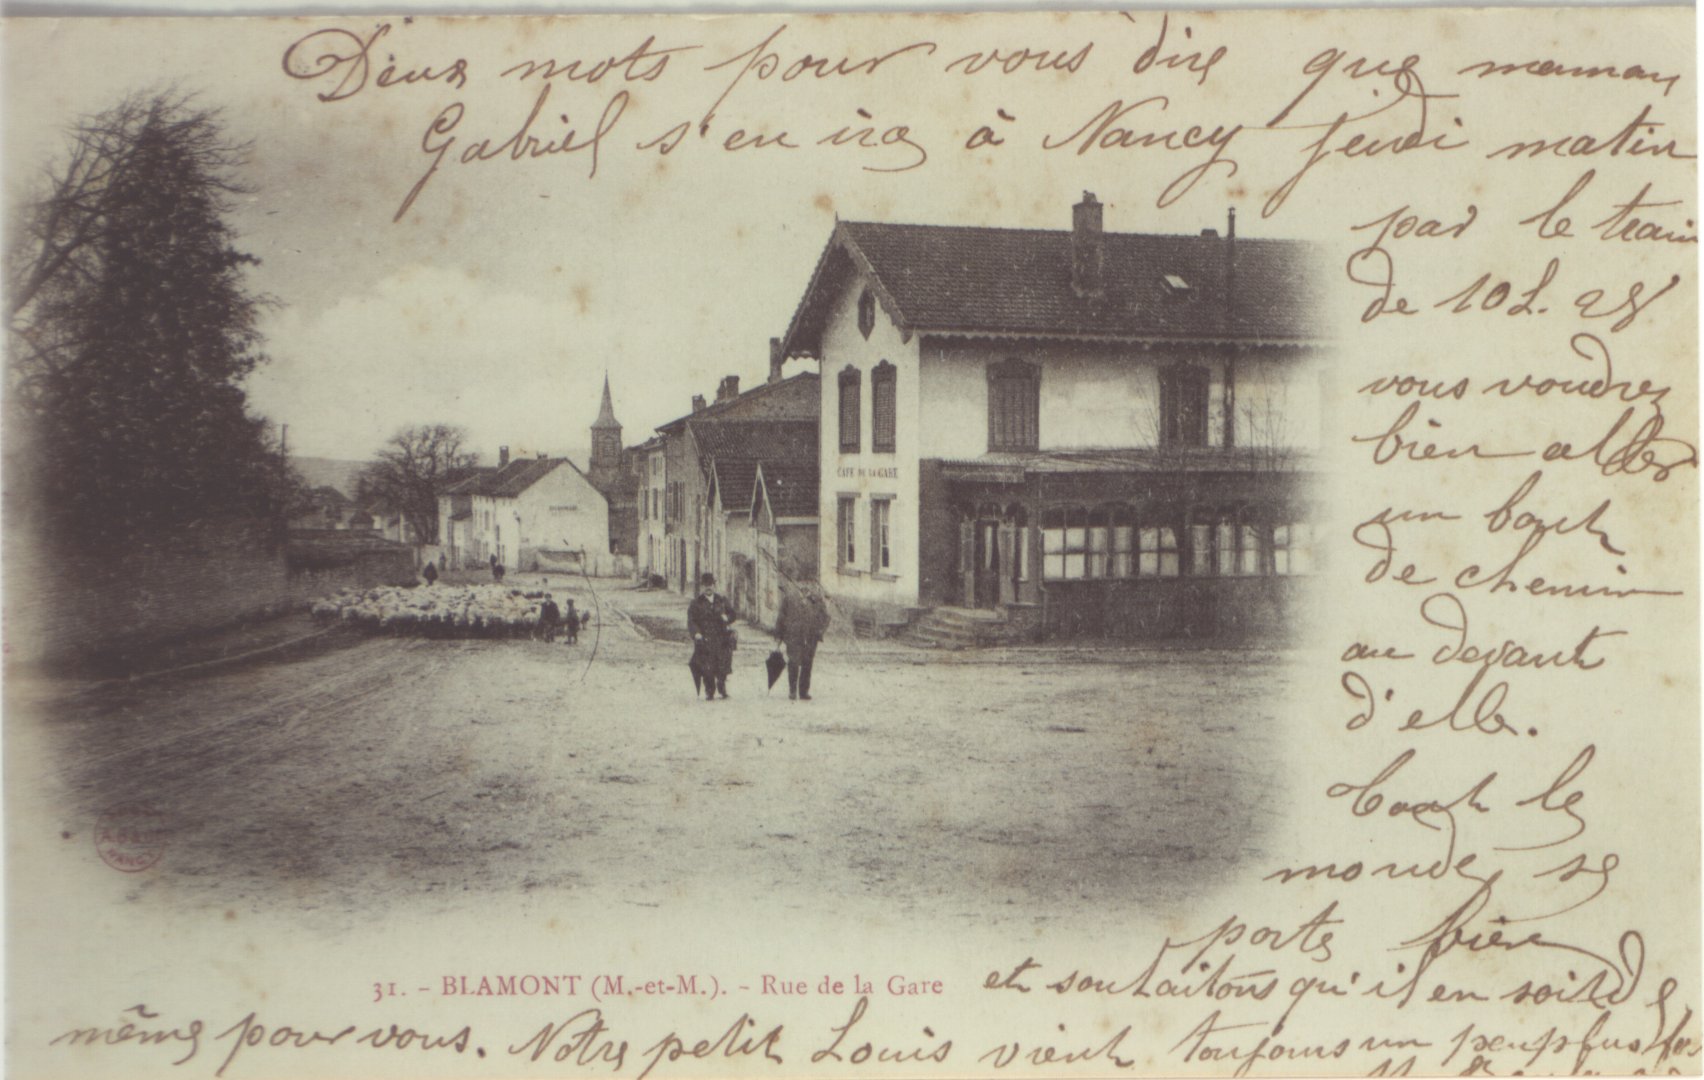 Deux mots pour vous dire que maman
Gabriel s'en ira à Nancy jeudi matin
par le train
de 10h. 28
vous voudrez
bien aller
un bout
de chemin
au devant
d'elle.
Tout le
monde se
porte bien
et souhaitons qu'il en soit de
même pour vous. Notre petit Louis vient toujours un peu plus
CAFE DE LA GARE
31. - BLAMONT (M.-et-M.). - Rue de la Gare
NANCY